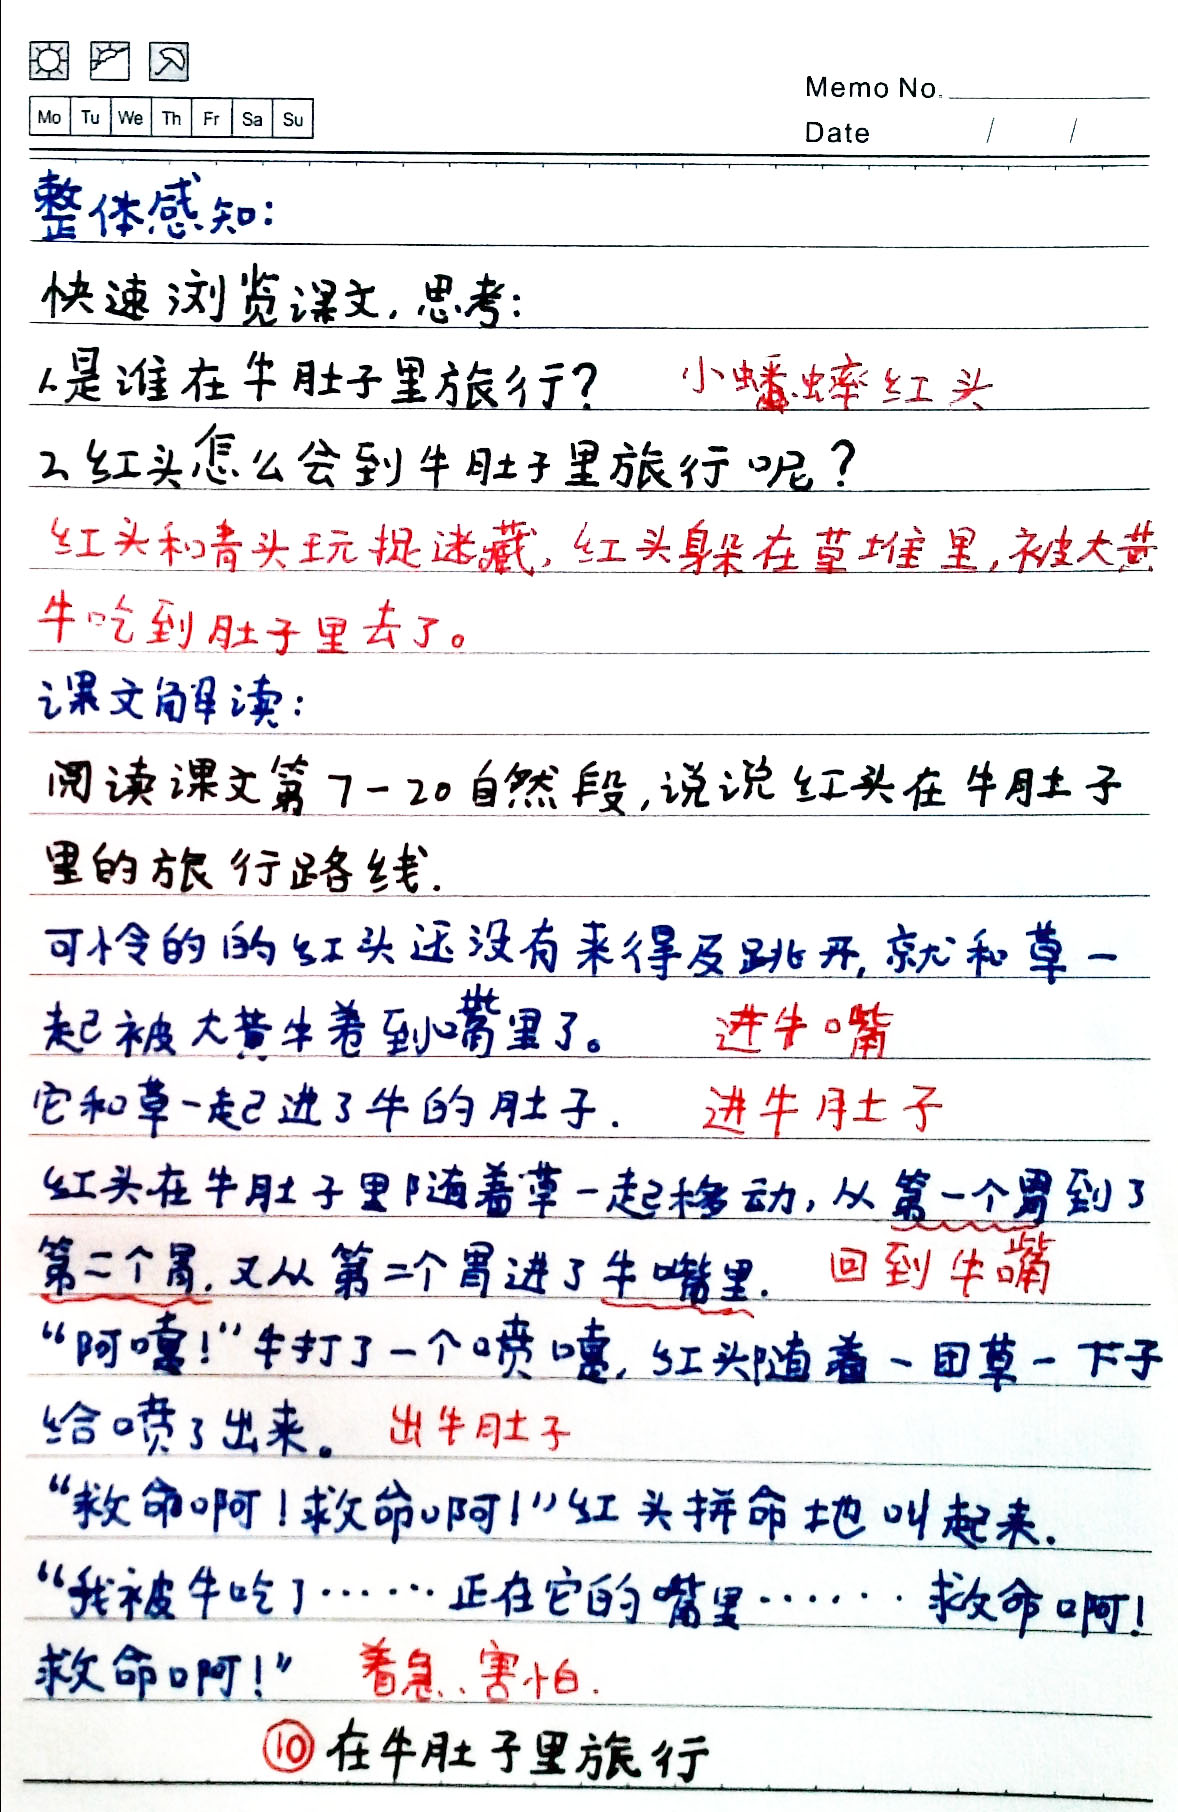 Memo No.
Mo Tu We Th Fr Sa Su
Date / /
整体感知:
快速浏览课文,思考:
1.是谁在牛肚子里旅行? 小蟠蟀红头
2.红头怎么会到牛肚子里旅行呢?
红头和青头玩捉迷藏,红头躲在草堆里,被大黄
牛吃到肚子里去了。
课文解读:
阅读课文第7-20自然段,说说红头在牛肚子
里的旅行路线.
可怜的的红头还没有来得及跳开,就和草一
起被大黄牛卷到嘴里了。 进牛嘴
它和草一起进了牛的肚子. 进牛肚子
红头在牛肚子里随着草一起移动,从第一个胃到了
第二个胃,又从第二个胃进了牛嘴里. 回到牛嘴
“阿嚏!”牛打了一个喷嚏,红头随着一团草一下子
给喷了出来。 出牛肚子
“救命啊!救命啊!”红头拼命地叫起来.
“我被牛吃了……正在它的嘴里……救命啊!
救命啊!” 着急、害怕.
⑩在牛肚子里旅行